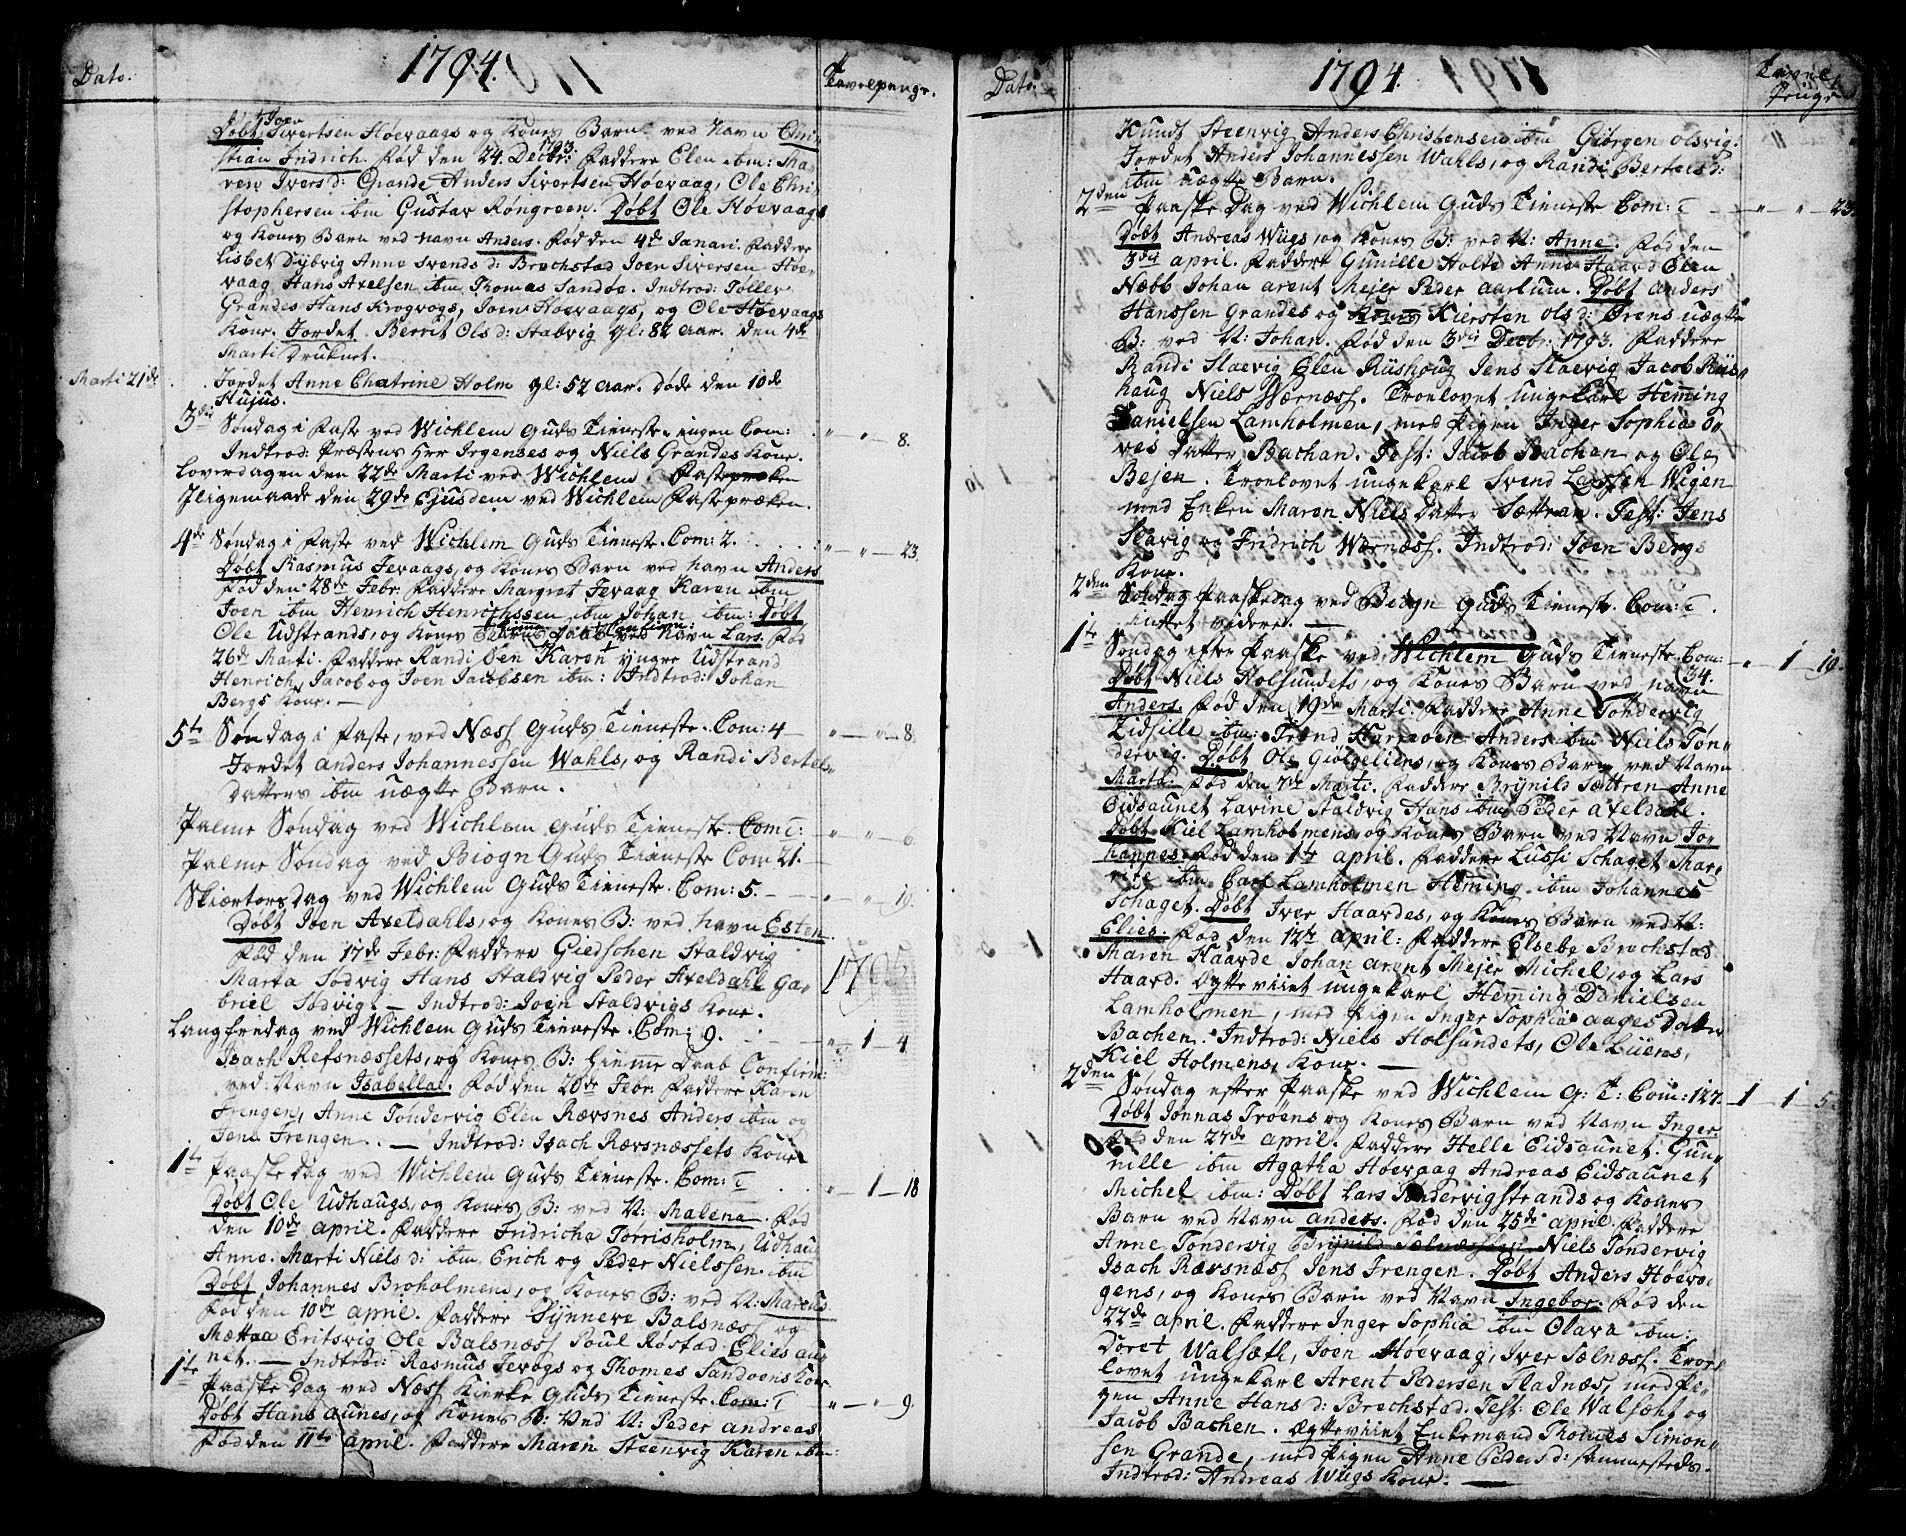 Dato.
1794.
Tavelpenge.
Døbt Joen Sivertsen Høevaags og Kones Barn ved Navn Chri-
stian Fridrich. Fød den 24. Decbr: 1793. Faddere Elen ibm: Ma-
ren Ivers d: Grande Anders Sivertsen Høevaag, Ole Chri-
stophersen ibm Gustav Røngreen. Døbt Ole Høevaags
og Kones Barn ved Navn Anders. Fød den 4de Januari. Faddere
Lisbet Dybvig Anne Svends d: Brechstad Joen Siversen Høe-
vaag Hans Axelsen ibm Thomas Sandøe. Indtrod: Toller
Grandes Hans Krogvogs, Joen Høevaags, og Ole Høevaags
Kone. Jordet. Berrit Ols d: Stabvig gl: 82 Aar. den 4de
Marti Druknet.
Marti 21de
Jordet Anne Chatrine Holm gl: 52 Aar. Døde den 10de
Hujus.
3die Søndag i Faste ved Wichlem Guds Tieneste ingen Com: " " 8.
Indtrod: Præstens Herr Irgenses og Niels Grandes Kone.
Løverdagen den 22de Marti ved Wichlem Fasteprøken
Iligemaade den 29de Ejusdem ved Wichlem Fastepræken.
4de Søndag i Faste ved Wichlem Guds Tieneste. Com: 2. " " 23.
Døbt Rasmus Jevaags, og Kones Barn ved Navn Anders
Fød den 28de Febr. Faddere Margret Jevaag Karen ibm
Joen ibm Henrich Henrichssen ibm Johan ibm: Døbt
Ole Udstrands, og Kones Barn ved Navn Lars. Fød
26de Marti. Faddere Randi Øen Karen yngre Udstrand
Henrich, Jacob og Joen Jacobsen ibm: Indtrod: Johan
Bergs Kone.
5te Søndag i Faste, ved Næss Guds Tieneste. Com: 4 " " 8
Jordet Anders Johannessen Wahls, og Randi Bertels-
Datters ibm uægte Barn.
Palme Søndag ved Wichlem Guds Tieneste. Com: " " 6
Palme Søndag ved Biogn Guds Tieneste Com 21.
Skiertorsdag ved Wichlem Guds Tieneste. Com: 5. " " 19.
Døbt Joen Axeldahls, og Kones B: ved Navn Esten
Fød den 17de Febr: Faddere Giedschen Staldvig
Marta Sødvig Hans Staldvig Peder Axeldahl Ga-
briel Sødvig. Indtrod: Joen Staldvigs Kone.
Langfredag ved Wichlem Guds Tieneste. Com: 9. " 1 4
Isach Refsnæssets, og Kones B: Hiemme Daab Confirm:
ved Navn Isabella. Fød den 20de Febr. Faddere Karen
Frengen, Anne Tondervig Elen Rævsnes Anders ibm og
Jens Frengen. Indtrod: Isach Rævsnæssets Kone
1te Paaske Dag ved Wichlem Guds Tieneste. Com: " 1 18
Døbt Ole Udhaugs, og Kones B: ved N: Malena. Fød
den 10de April. Faddere Fridricha Torrisholm, Udhaug
Anne. Marti Niels d: ibm Erich og Peder Nielssen ibm
Døbt Johannes Broholmens, og Kones B: ved N: Marcus
Fød den 10de April. Faddere Synneve Balsnæss og
Mættaa Eritsvig Ole Balsnæss Poul Røstad Elies au-
net. Indtrod: Rasmus Jevogs og Thomes Sandøens Kone.
1te Paaske Dag ved Næss Kierke Guds Tieneste. Com: " " 9
Døbt Hans Aunes, og Kones B: Ved N: Peder Andreas
Fød den 11te April. Faddere Maren Steenvig Karen ibm:
Dato.
1794.
Tavel Penge
Knudt Steenvig Anders Christensen ibm Giørgen Olsvig:
Jordet Anders Johannessen Wahls, og Randi Bertels d:
ibm uægte Barn.
2den Paaske Dag ved Wichlem Guds Tieneste Com: " " 23
Døbt Andreas Wiigs, og Kones B: ved N: Anne. Fød den
3die April. Faddere Gunille Holte Anne Haard Elen
Næbb Johan Arent Mejer Peder Aarlum. Døbt Anders
Hanssen Grandes og Kones Kiersten Ols d: Ørens uægte
B: ved N: Johan. Fød den 3die Decbr: 1793. Faddere
Randi Slaevig Elen Riishoug Jens Slaevig Jacob Riis-
haug Niels Wærnæss. Troelovet ungekarl Heming
Danielsen Lamholmen, med Pigen Inger Sophia O-
ves Datter Bachan. Test: Jacob Bachen og Ole
Bejen. Troelovet ungekarl Svend Larssen Wigen
med Enken Maren Niels Datter Sættran. Test: Jens
Slavig og Fridrich Wærnæss. Indtrod: Joen Bergs
Kone.
2den Søndag Paaskedag ved Beign Guds Tieneste. Com:
intet videre.
1te Søndag efter Paaske ved Wichlem Guds Tieneste. Com: 34. " 1 19
Døbt Niels Holsundets, og Kones Barn ved Navn
Anders. Fød den 19de Marti. Faddere Anne Tondervig
Zidsille ibm: Trond Hurraøen Anders ibm Niels Tøn-
dervig. Døbt Ole Gioldeliens, og Kones Barn ved Navn
Marta. Fød den 7de Marti. Faddere Brynild Sættren Anne
Eidsaunet Lavine Staldvig Hans ibm Peder Axeldahl.
Døbt Kiel Lamholmens og Kones Barn ved Navn Jo-
hannes. Fød den 1te April. Faddere Lussi Schaget Mar-
rite ibm Carl Lamholmen Heming ibm Johannes
Schaget. Døbt Iver Haardes, og Kones Barn ved N:
Elies. Fød den 12te April: Faddere Elsebe Brechstad
Maren Haarde Johan Arent Mejer Michel, og Lars
Haard. Egteviiet ungekarl Hemming Danielsen
Lamholmen, med Pigen Inger Sophia Aages Datter
Bachen. Indtrod: Niels Holsundets, Ole Liiens,
Kiel Holmens, Kone.
2den Søndag efter Paaske ved Wichlem G: T: Com: 127. 1 1 5
Døbt Jonnas Troens og Kones Barn ved Navn Inger
Fød den 27de April. Faddere Helle Eidsaunet. Gun-
nille ibm Agatha Høevaag Andreas Eidsaunet
Michel ibm: Døbt Lars Tondervigstrands og Kones
Barn ved Navn Anders. Fød den 25de April. Faddere
Anne Tondervig Brynild Selnæssen Niels Tondervig
Isach Rævsnæss Jens Frengen. Døbt Anders Høevo-
gens, og Kones Barn ved Navn Ingebor. Fød den
22de April. Faddere Inger Sophia ibm Olava ibm:
Doret Walsætt, Joen Høevaag, Iver Selnæss. Troe-
lovet ungekarl Arent Pedersen Sladnæs, med Pi-
gen Anne Hans d: Brechstad. Test: Ole Walsæht og
Jacob Bachen. Ægteviiet Enkemand Thomes Simon-
sen Grande, med Pigen Anne Peders d: sammesteds.
Indtrod: Andreas Wiigs Kone.